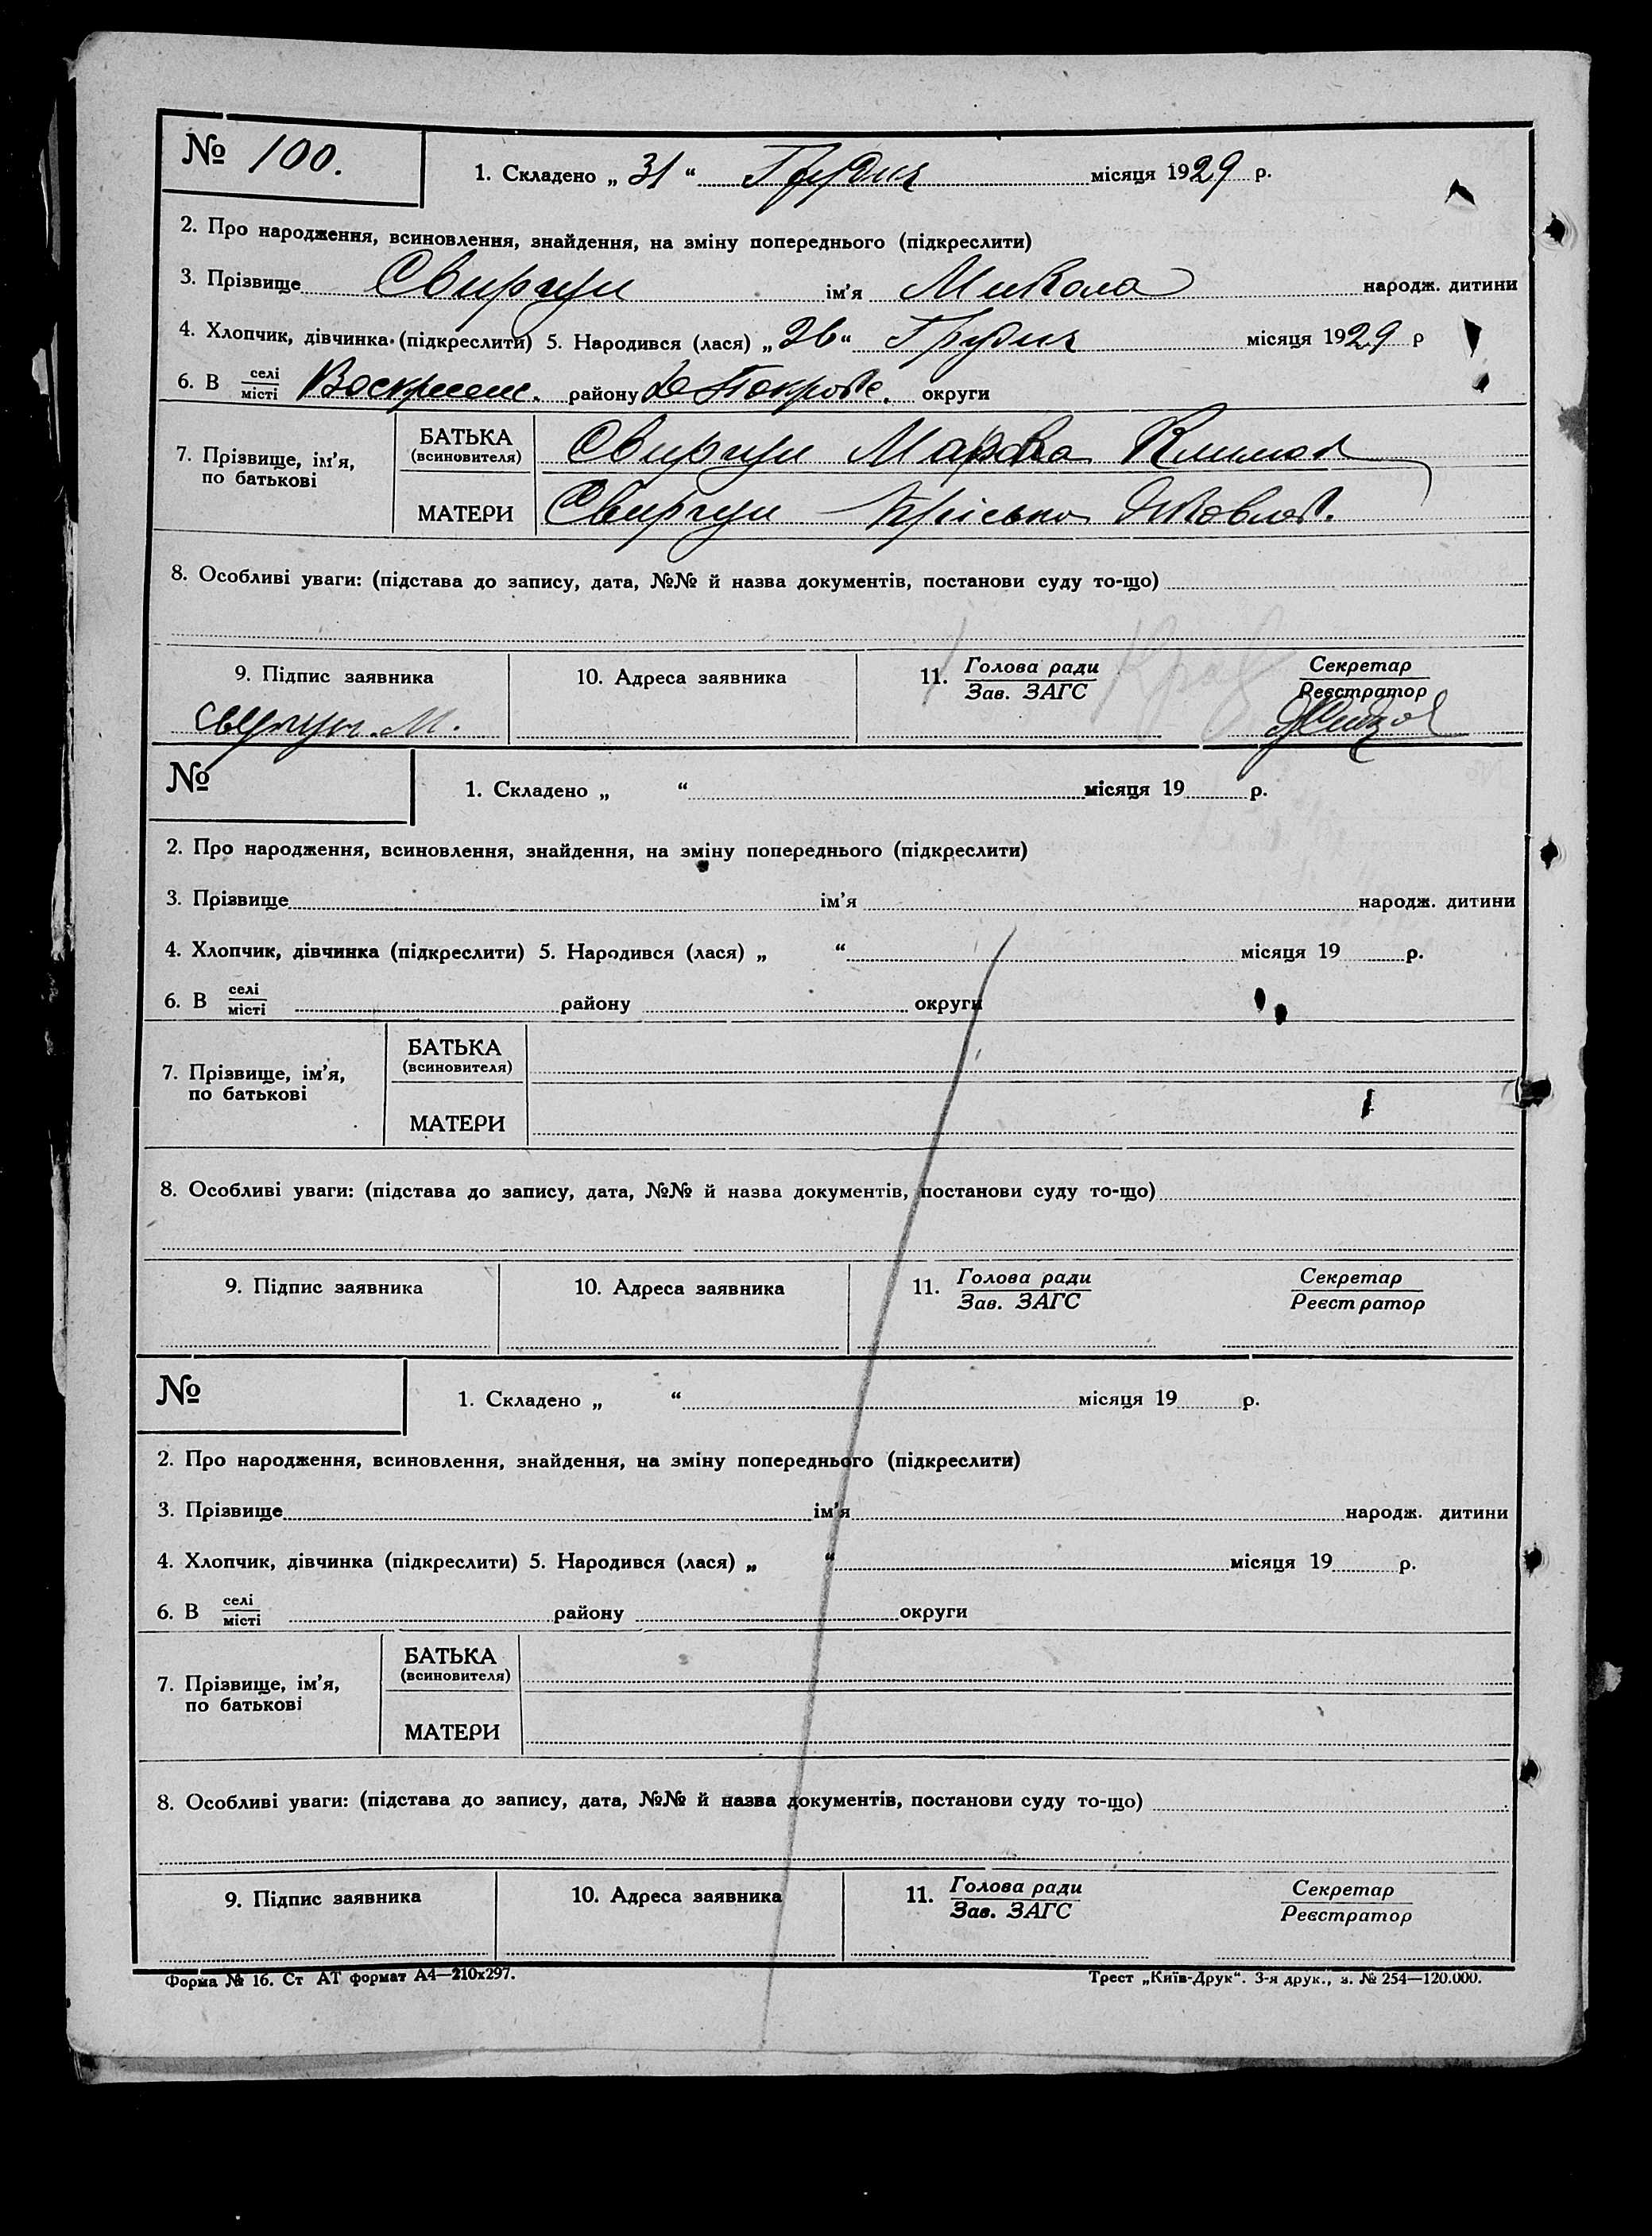 № 100.
1. Складено „ 31 “ Грудня місяця 1929 р.
2. Про народження, всиновлення, знайдення, на зміну попереднього (підкреслити)
3. Прізвище Свиргун ім'я Микола народж. дитини
4. Хлопчик, дівчинка (підкреслити) 5. Народився (лася) „ 26 “ Грудня місяця 1929 р
6. В селі/місті району округи
7. Прізвище, ім'я, по батькові
БАТЬКА (всиновителя) Свиргун Марко Климов
МАТЕРИ Свиргун Яковлев.
8. Особливі уваги: (підстава до запису, дата, №№ й назва документів, постанови суду то-що)
9. Підпис заявника 10. Адреса заявника 11. Голова ради/Зав. ЗАГС Секретар/Реєстратор
Свиргун. М.
№
1. Складено „ “ місяця 19 р.
2. Про народження, всиновлення, знайдення, на зміну попереднього (підкреслити)
3. Прізвище ім'я народж. дитини
4. Хлопчик, дівчинка (підкреслити) 5. Народився (лася) „ “ місяця 19 р.
6. В селі/місті району округи
7. Прізвище, ім'я, по батькові
БАТЬКА (всиновителя)
МАТЕРИ
8. Особливі уваги: (підстава до запису, дата, №№ й назва документів, постанови суду то-що)
9. Підпис заявника 10. Адреса заявника 11. Голова ради/Зав. ЗАГС Секретар/Реєстратор
№
1. Складено „ “ місяця 19 р.
2. Про народження, всиновлення, знайдення, на зміну попереднього (підкреслити)
3. Прізвище ім'я народж. дитини
4. Хлопчик, дівчинка (підкреслити) 5. Народився (лася) „ “ місяця 19 р.
6. В селі/місті району округи
7. Прізвище, ім'я, по батькові
БАТЬКА (всиновителя)
МАТЕРИ
8. Особливі уваги: (підстава до запису, дата, №№ й назва документів, постанови суду то-що)
9. Підпис заявника 10. Адреса заявника 11. Голова ради/Зав. ЗАГС Секретар/Реєстратор
Форма № 16. Ст АТ формат А4—210х297. Трест „Київ-Друк“. 3-я друк., з. № 254—120.000.